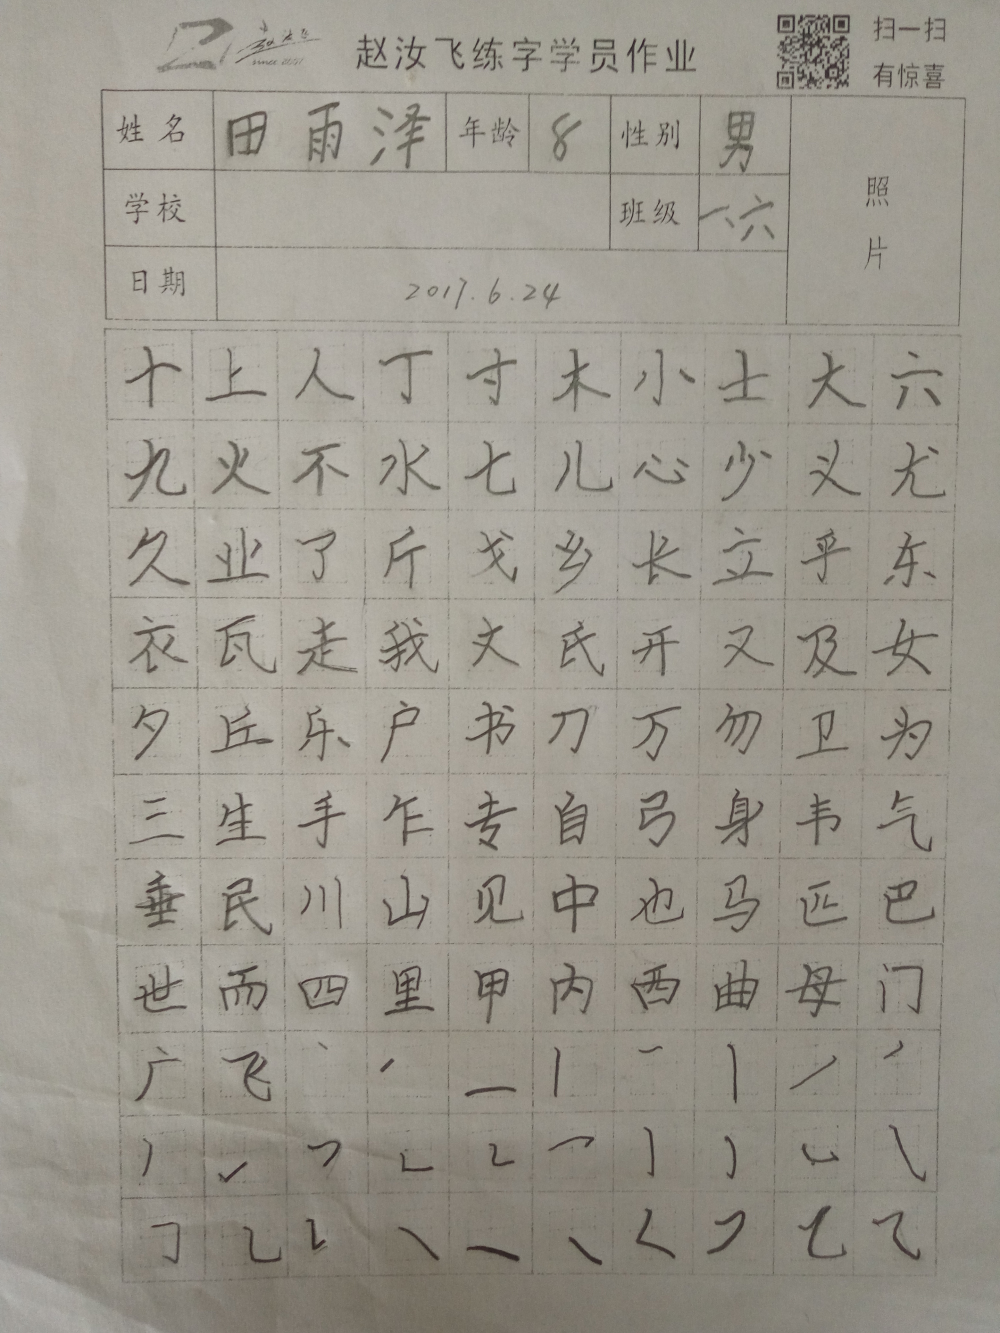 since 2011
赵汝飞练字学员作业
扫一扫
有惊喜
姓名 田雨泽 年龄 8 性别 男
照片
学校 班级 一、六
日期 2017.6.24
十上人丁寸木小士大六
九火不水七儿心少义尤
久业了斤戈乡长立乎东
衣瓦走我丈氏开又及女
夕丘乐户书刀万勿卫为
三生手乍专自弓身韦气
垂民川山见中也马匹巴
世而四里甲内西曲母门
广飞